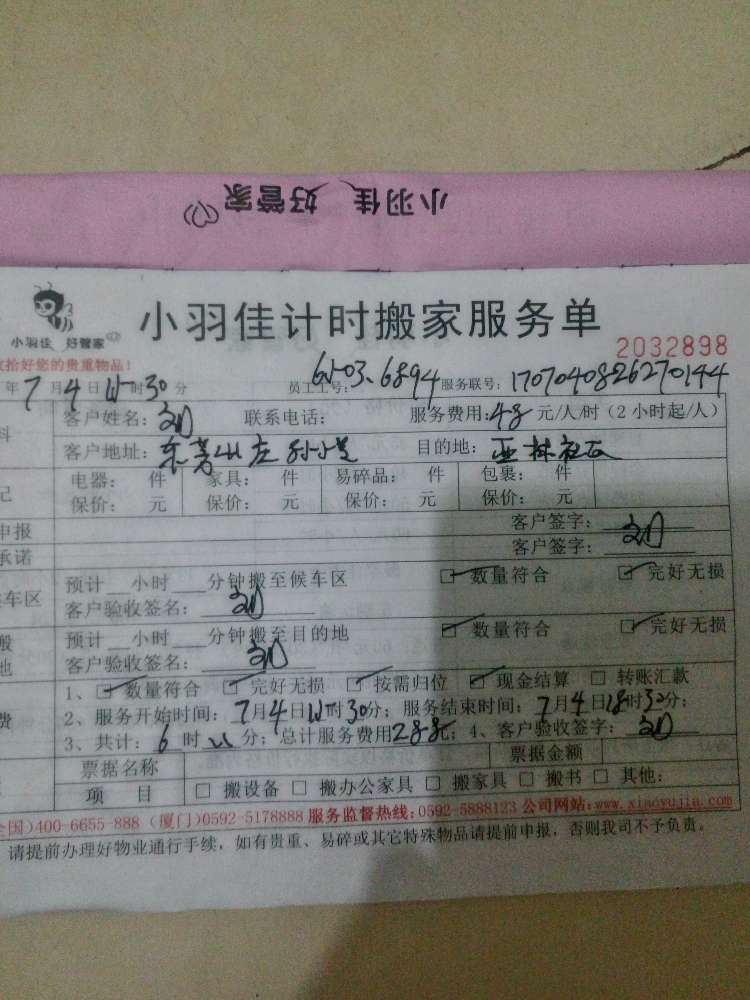 小羽佳 好管家
小羽佳计时搬家服务单
小羽佳 好管家
2032898
拾好您的贵重物品!
年7月4日 时30分 员工工号: 6103.6894 服务联号: 1707040826270144
客户姓名: 联系电话: 服务费用:48元/人/时(2小时起/人)
客户地址: 目的地:
电器: 件 家具: 件 易碎品: 件 包裹: 件
保价: 元 保价: 元 保价: 元 保价: 元
申报 客户签字:
承诺 客户签字:
预计 小时 分钟搬至候车区 数量符合 完好无损
车区 客户验收签名:
预计 小时 分钟搬至目的地 数量符合 完好无损
地 客户验收签名:
1、 数量符合 完好无损 按需归位 现金结算 转账汇款
费 2、服务开始时间: 7月4日 时30分; 服务结束时间: 7月4日18时30分;
3、共计: 6时 分; 总计服务费用288元; 4、客户验收签字:
票据名称 票据金额
项 目 搬设备 搬办公家具 搬家具 搬书 其他:
国)400-6655-888 (厦门)0592-5178888 服务监督热线:0592-5888123 公司网站:www.xiaoyujia.com
请提前办理好物业通行手续,如有贵重、易碎或其它特殊物品请提前申报,否则我司不予负责。